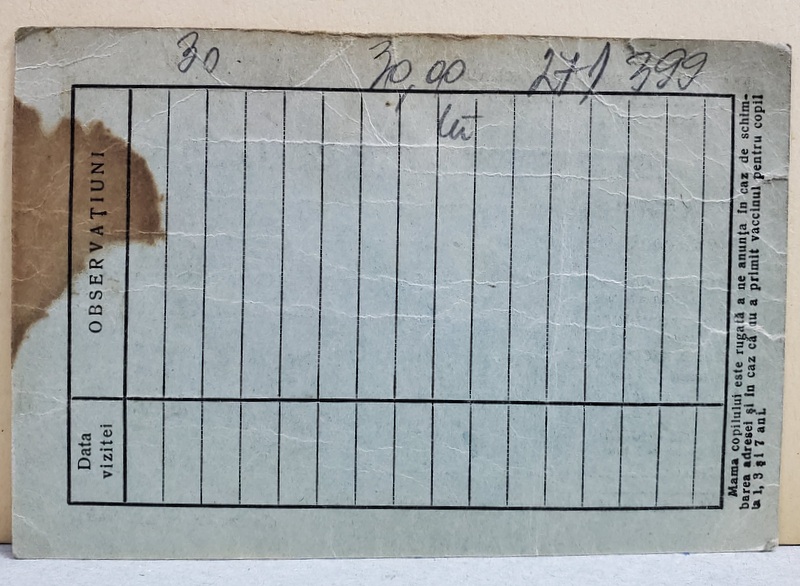 30.
30,00
271 399
lei
OBSERVAȚIUNI
Data
vizitei
Mama copilului este rugată a ne anunța în caz de schim-
barea adresei și în caz că nu a primit vaccinul pentru copil
la 1, 3 și 7 ani.